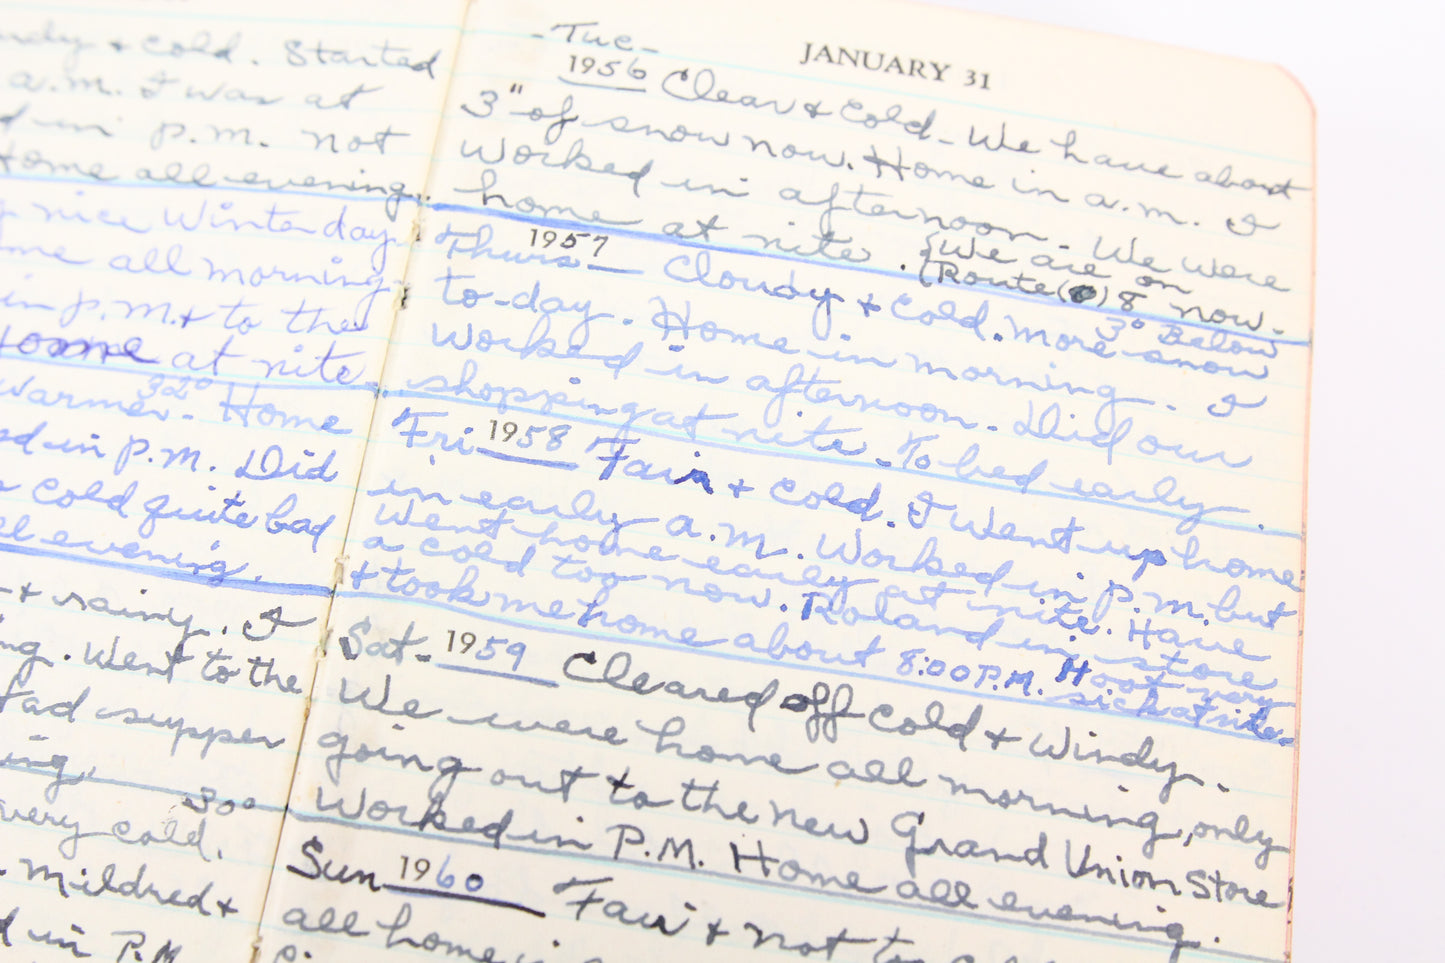 cold. Started
a.m. I was at
in p.m. not
Home all evening.
nice Winter day
all morning
in p.m. + to the
Home at nite
32°
Warmer. Home
in P.M. Did
cold quite bad
evening.
+ rainy. I
Went to the
Had supper
30°
very cold.
Mildred +
in P.M
JANUARY 31
-Tue-
1956 Clear & Cold - We have about
3" of snow now. Home in a.m. I
worked in afternoon - We were
home at nite. {We are on
Route ( ) 8 now.
Thurs 1957 Cloudy + Cold. 3° Below
More snow
to-day. Home in morning. I
worked in afternoon. Did our
shopping at nite. To bed early.
Fri 1958 Fair + Cold. I Went up home
in early a.m. Worked in P.M. but
Went home early at nite. Have
a cold too now. Roland in store
+ took me home about 8:00 P.M. Hoot very
sick at nite.
Sat- 1959 Cleared off cold + Windy.
We were home all morning, only
going out to the new Grand Union Store
Worked in P.M. Home all evening.
Sun 1960 Fair + not to
all home